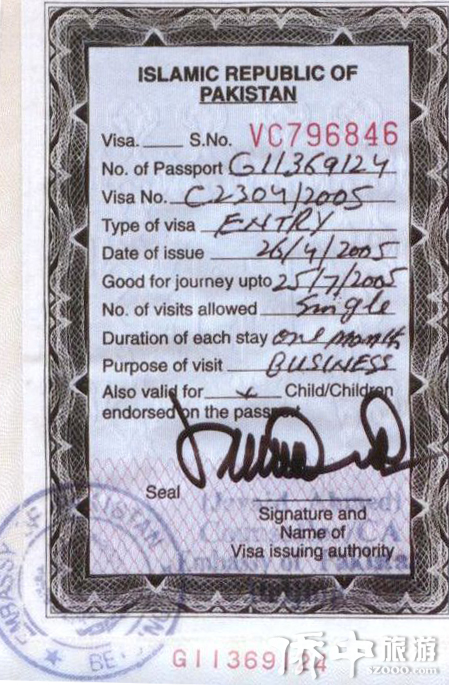 ISLAMIC REPUBLIC OF
PAKISTAN
Visa. ____ S.No. VC796846
No. of Passport G11369124
Visa No. C2304/2005
Type of visa ENTRY
Date of issue 26/4/2005
Good for journey upto 25/7/2005
No. of visits allowed Single
Duration of each stay one month
Purpose of visit BUSINESS
Also valid for x Child/Children
endorsed on the passport
Seal
Signature and
Name of
Visa issuing authority
Embassy of Pakistan
EMBASSY OF PAKISTAN
G11369124
侨中旅游
sz000.com